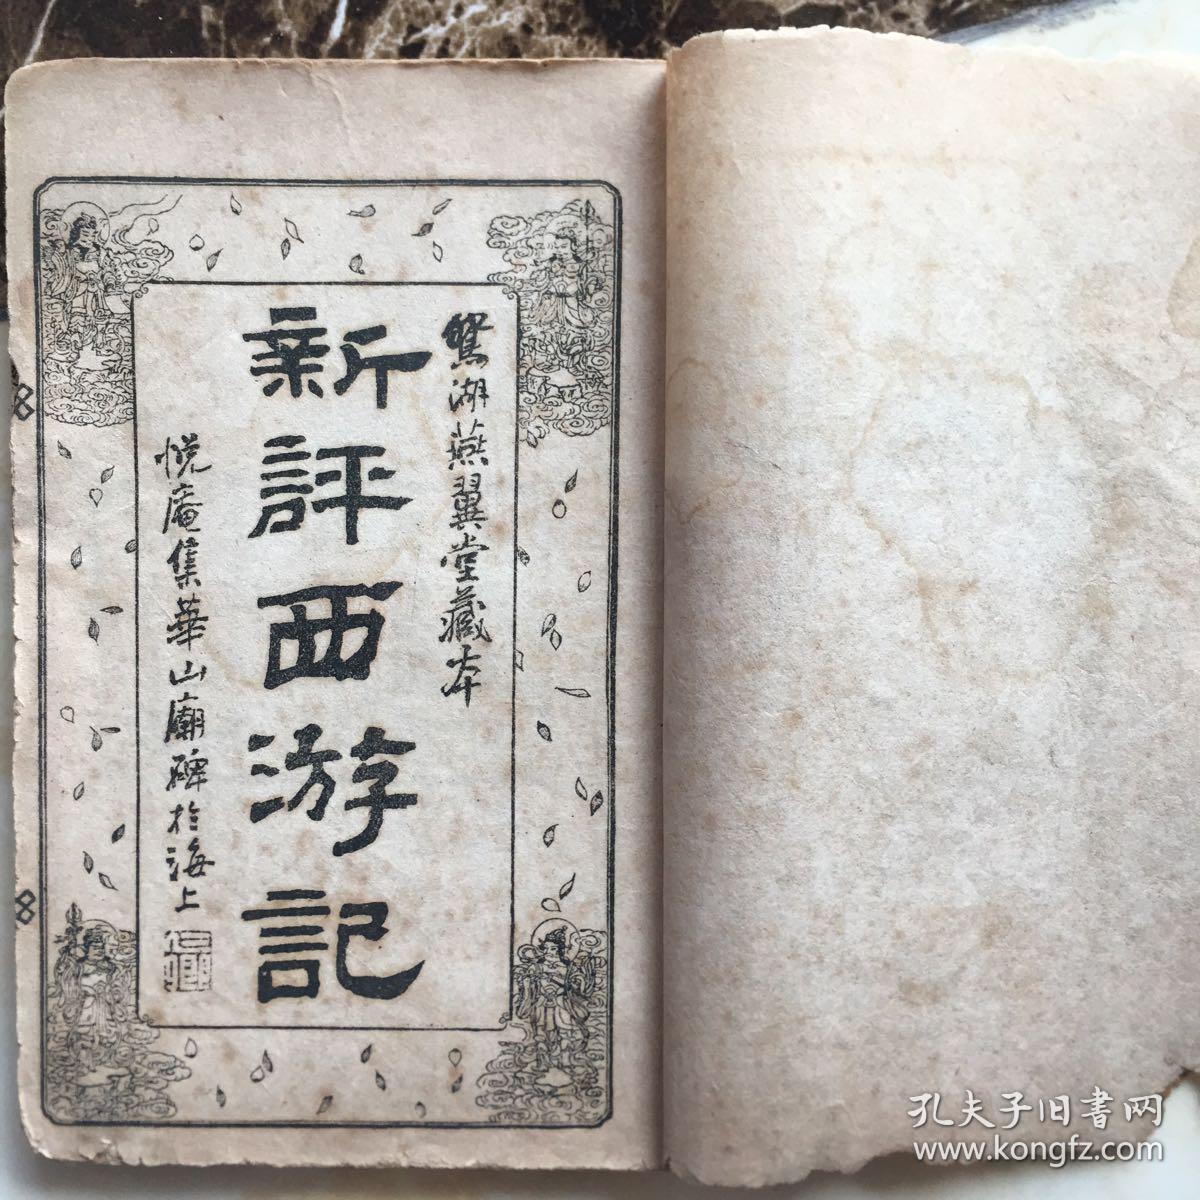 鴛湖燕翼堂藏本
新評西游記
悦庵集華山廟碑於海上
孔夫子旧書网
www.kongfz.com